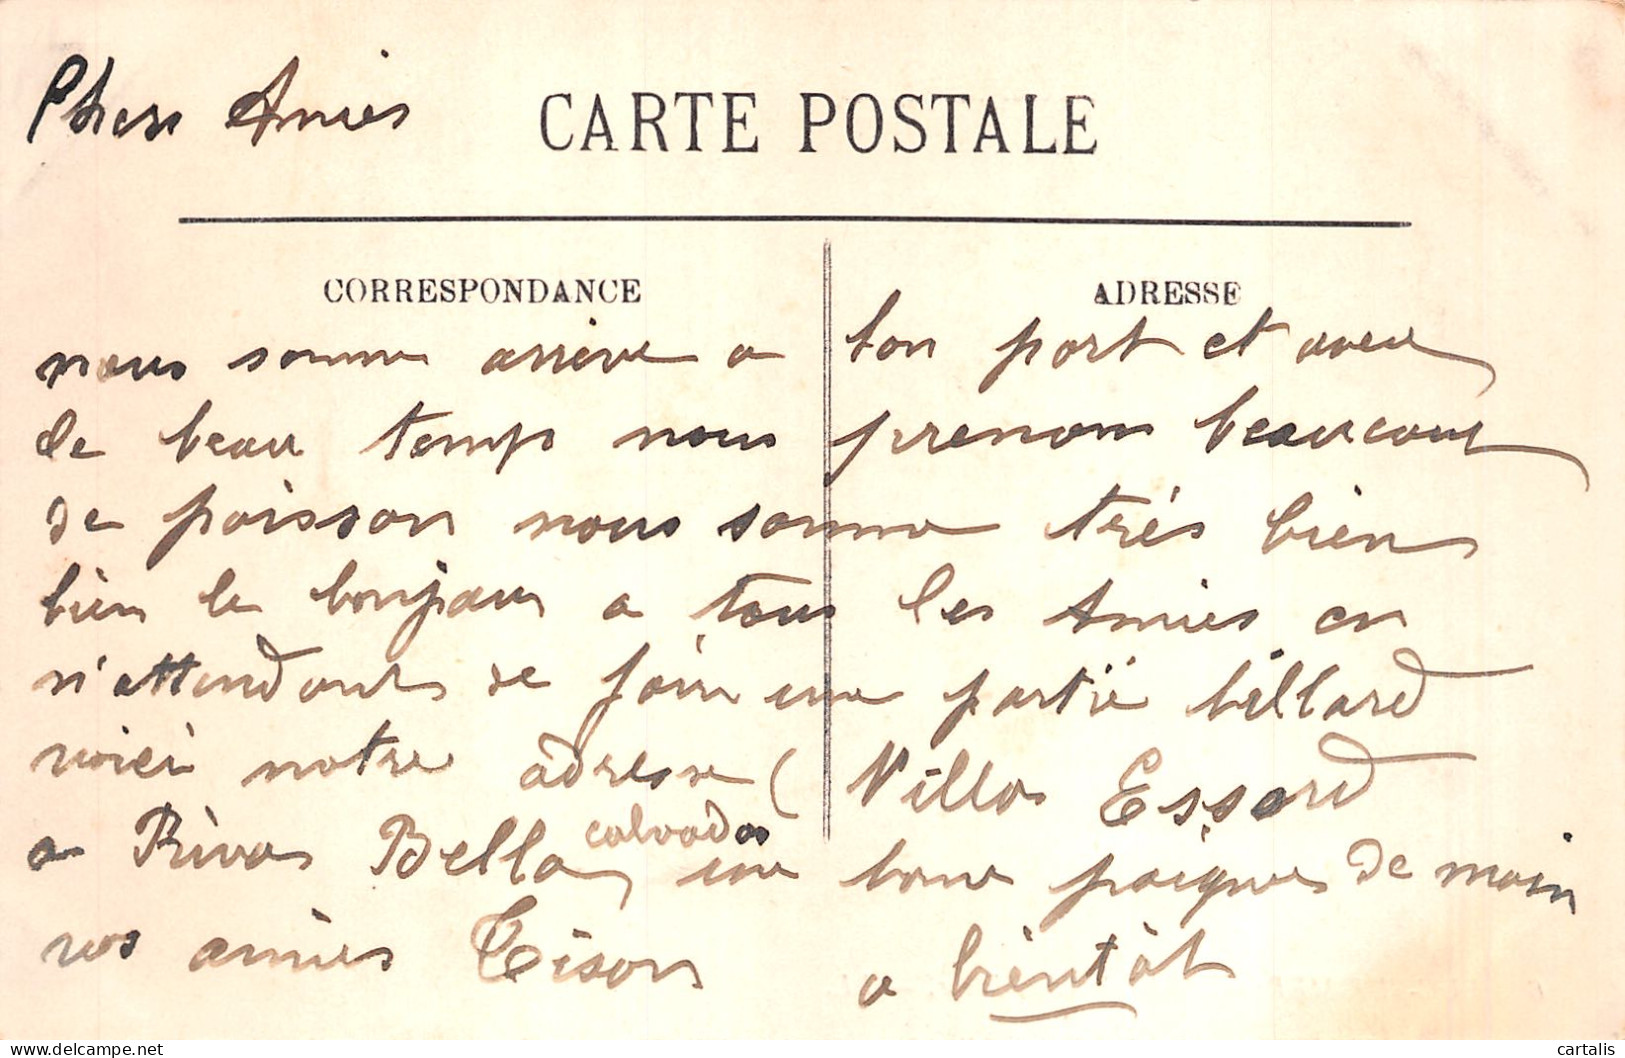 Chers Amies
CARTE POSTALE
CORRESPONDANCE
ADRESSE
nous somme arrive a bon port et avec
de beau temps nous prenom beaucout
de poisson nous somme trés bien
bien le bonjour a tous les Amies en
n'attendant de foire une partïe billard
voici notre adresse ( Villa Essard
a Riva Bella calvados une bone poigne de main
vos amies Tison
a bientôt
cartalis